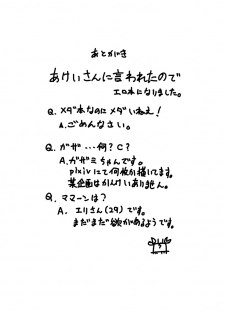 あとがき
あけいさんに言われたので
エロ本になりました。
Q. メダ本なのにメダいねぇ!
A. ごめんなさい。
Q. ガザ…何?C?
A. ガザミちゃんです。
pixivにて何枚か描いてます。
某企画はかんけいあり絶ん。
Q. ママーンは?
A. エリさん(29)です。
まだまだ欲があるようです。